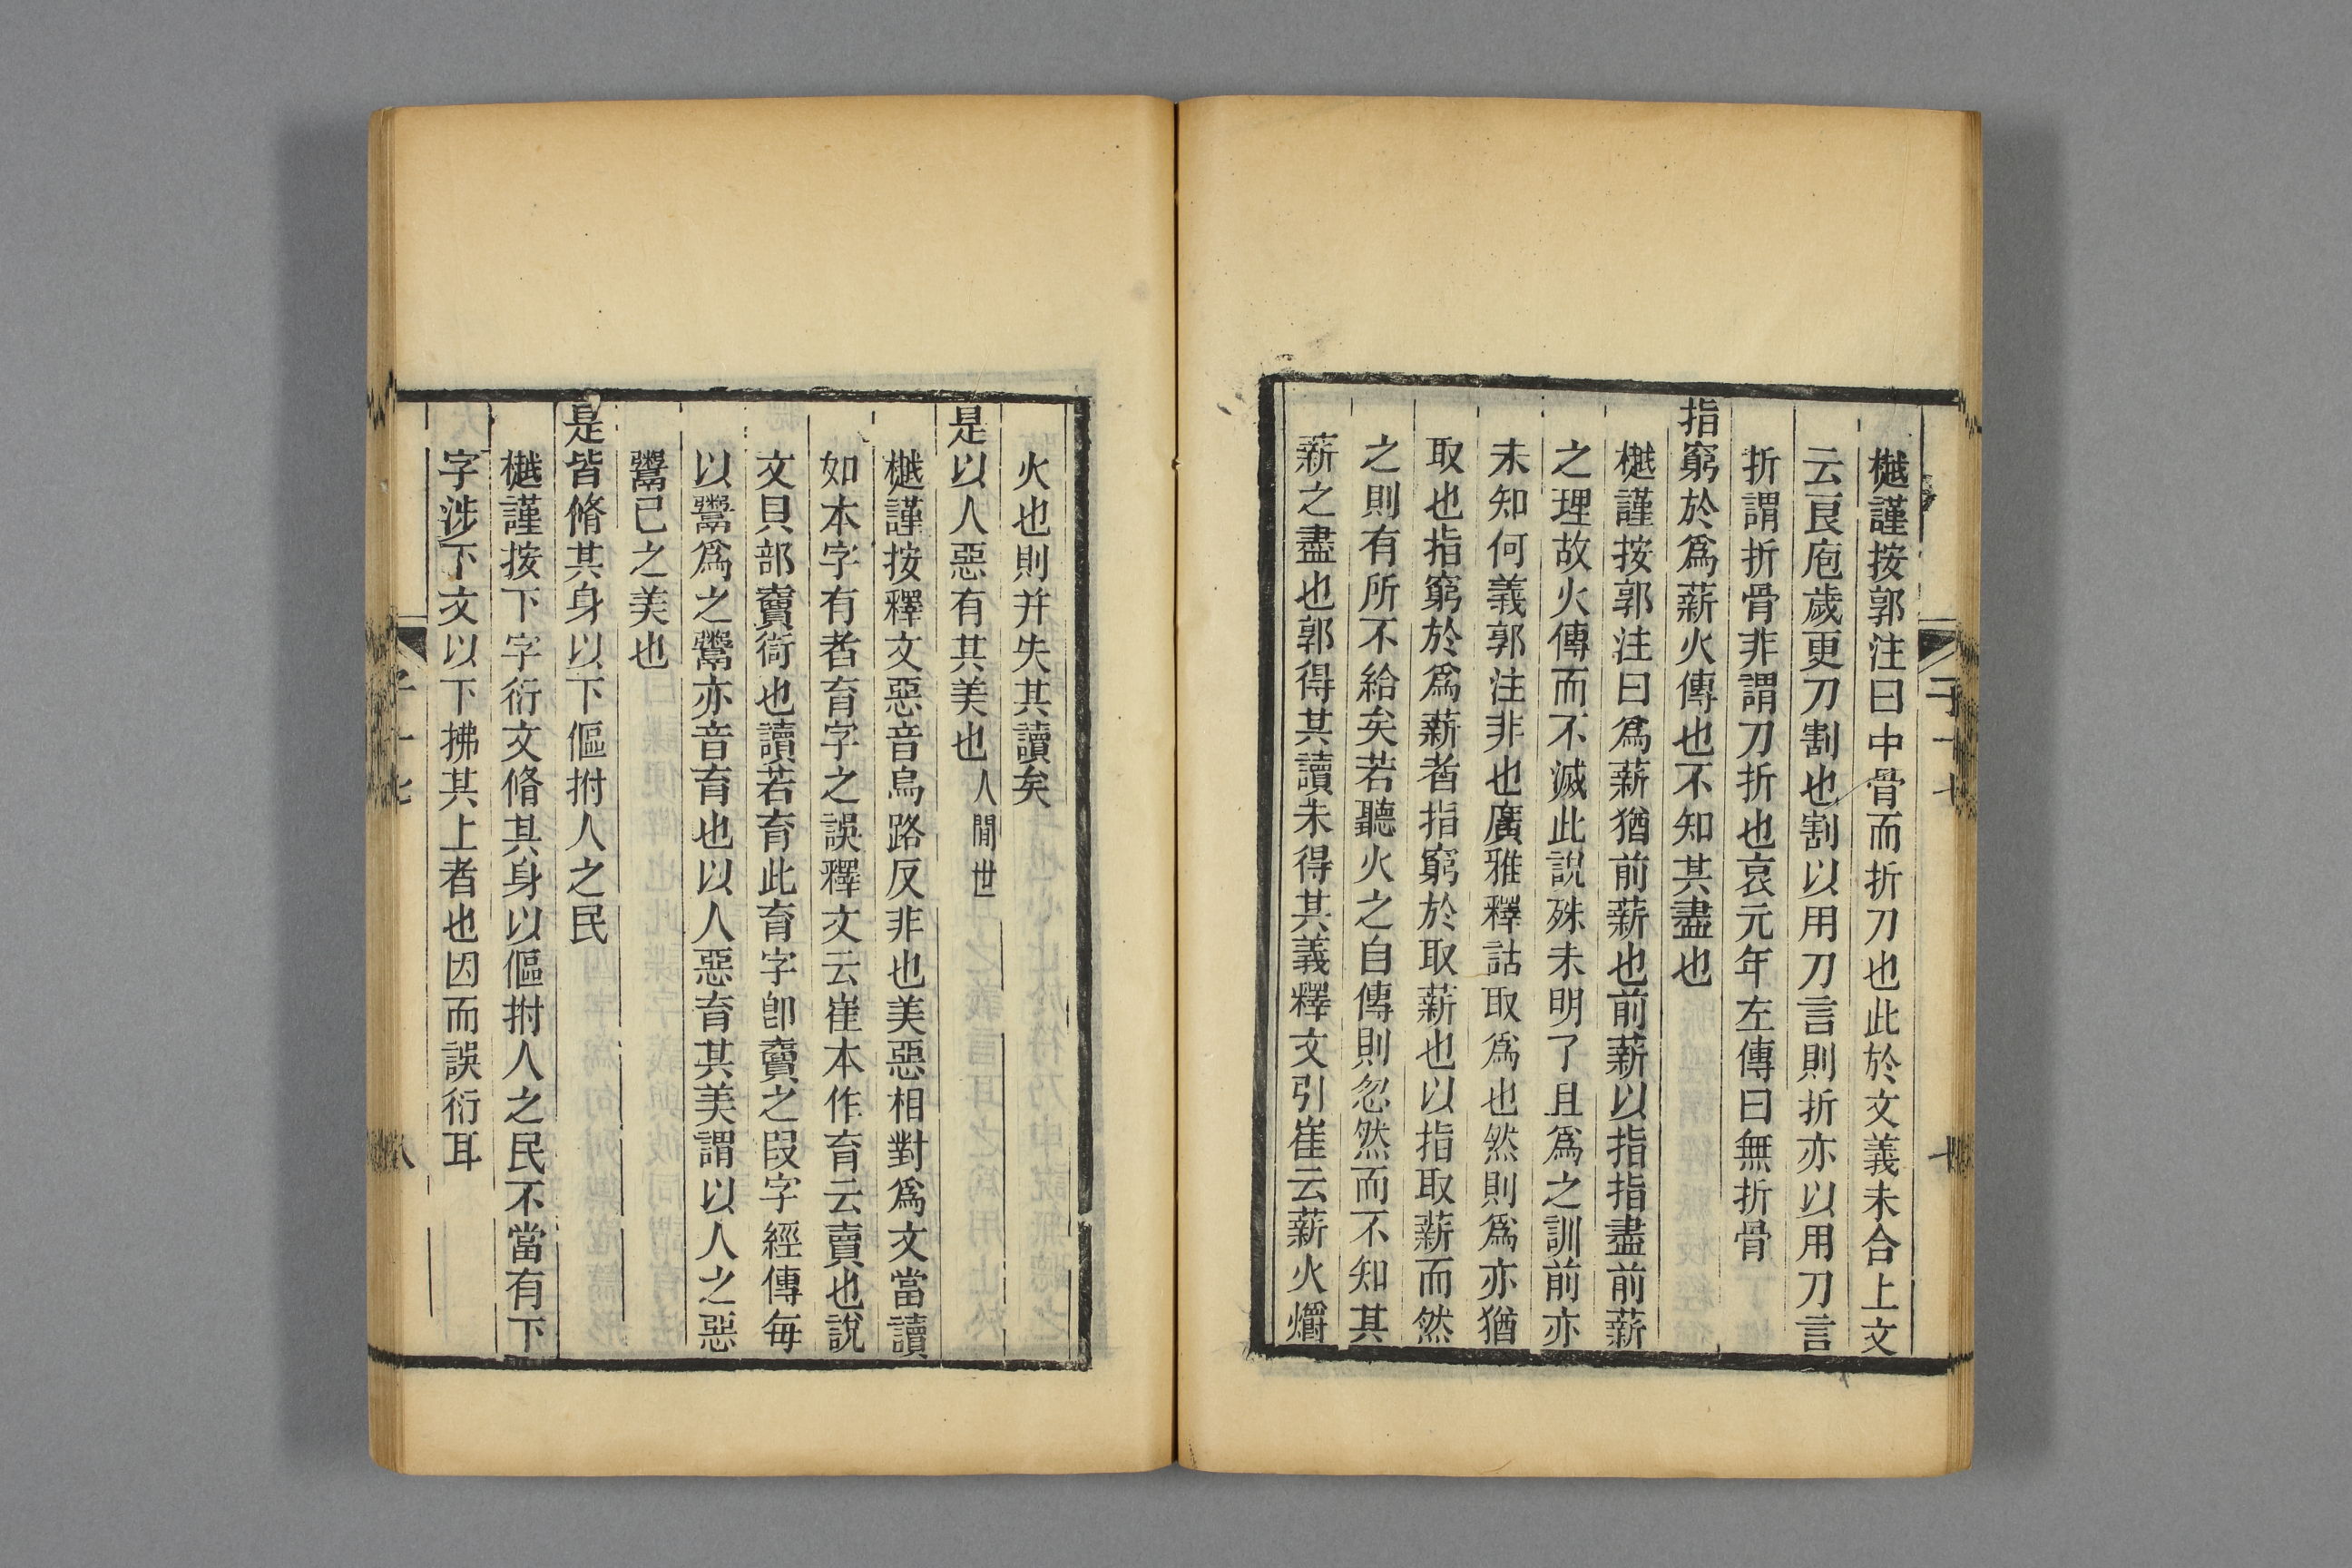 樾謹按郭注曰中骨而折刀也此於文義未合上文
云良庖歲更刀割也割以用刀言則折亦以用刀言
折謂折骨非謂刀折也哀元年左傳曰無折骨
指窮於爲薪火傳也不知其盡也
樾謹按郭注曰爲薪猶前薪也前薪以指指盡前薪
之理故火傳而不滅此說殊未明了且爲之訓前亦
未知何義郭注非也廣雅釋詁取爲也然則爲亦猶
取也指窮於爲薪者指窮於取薪也以指取薪而然
之則有所不給矣若聽火之自傳則忽然而不知其
薪之盡也郭得其讀未得其義釋文引崔云薪火爝
火也則并失其讀矣
是以人惡有其美也人閒世
樾謹按釋文惡音烏路反非也美惡相對爲文當讀
如本字有者育字之誤釋文云崔本作育云賣也說
文貝部䝱衒也讀若育此育字卽䝱之叚字經傳每
以鬻爲之鬻亦音育也以人惡育其美謂以人之惡
鬻己之美也
是皆脩其身以下傴拊人之民
樾謹按下字衍文脩其身以傴拊人之民不當有下
字涉下文以下拂其上者也因而誤衍耳
子十七
八